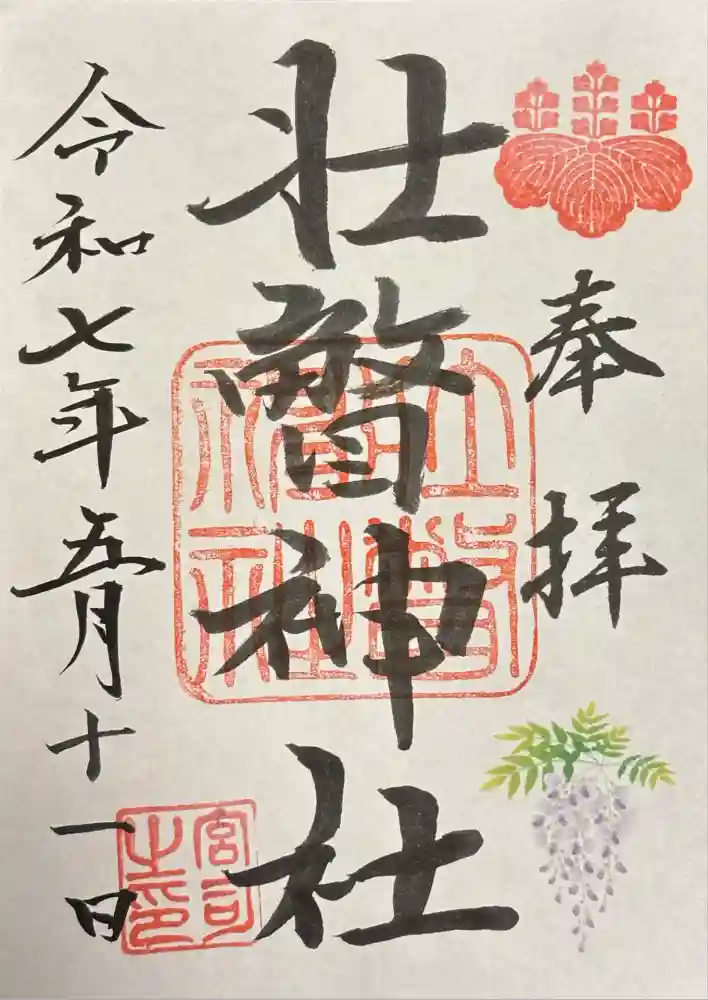 奉拝
壮瞥神社
令和七年五月十一日
壮瞥神社
宮司之印